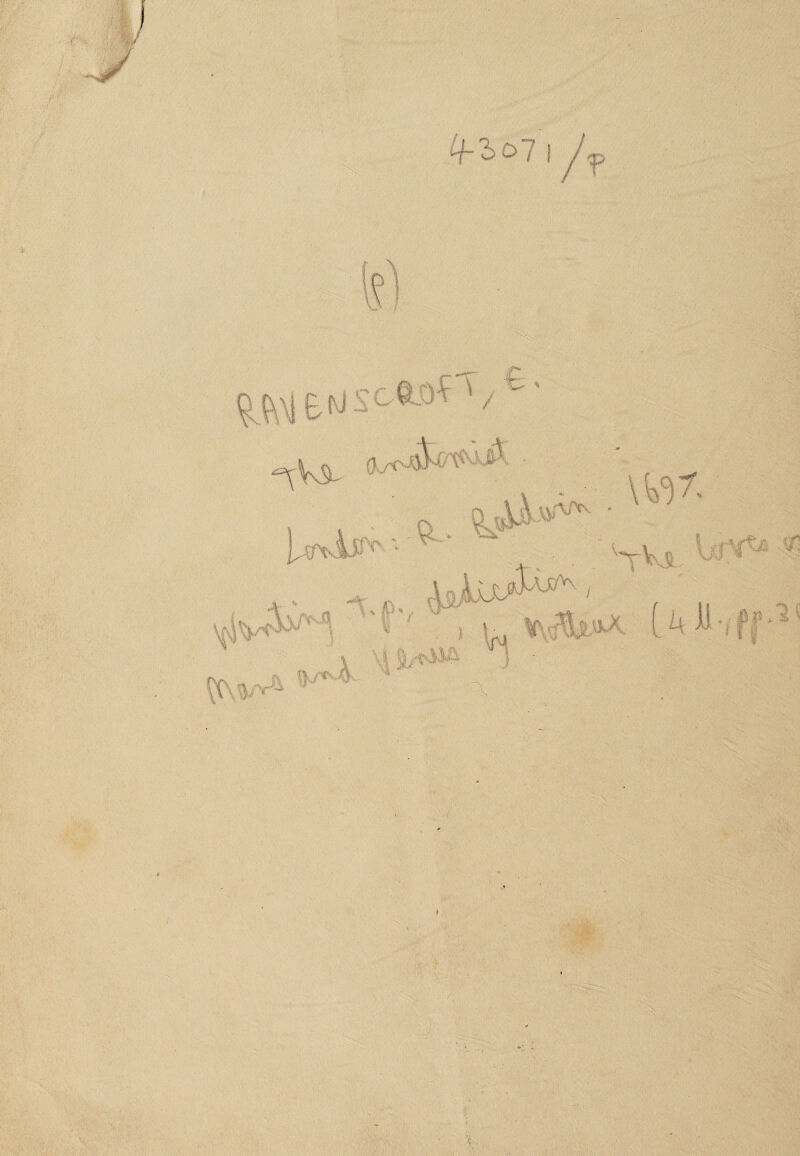 43071/P
(P)
RAVENSCROFT, E.
The anatomist.
London: R. Baldwin. 1697.
Wanting t.p., dedication, 'The loves o
Mars and Venus' by Motteux (4 ll., pp. 3